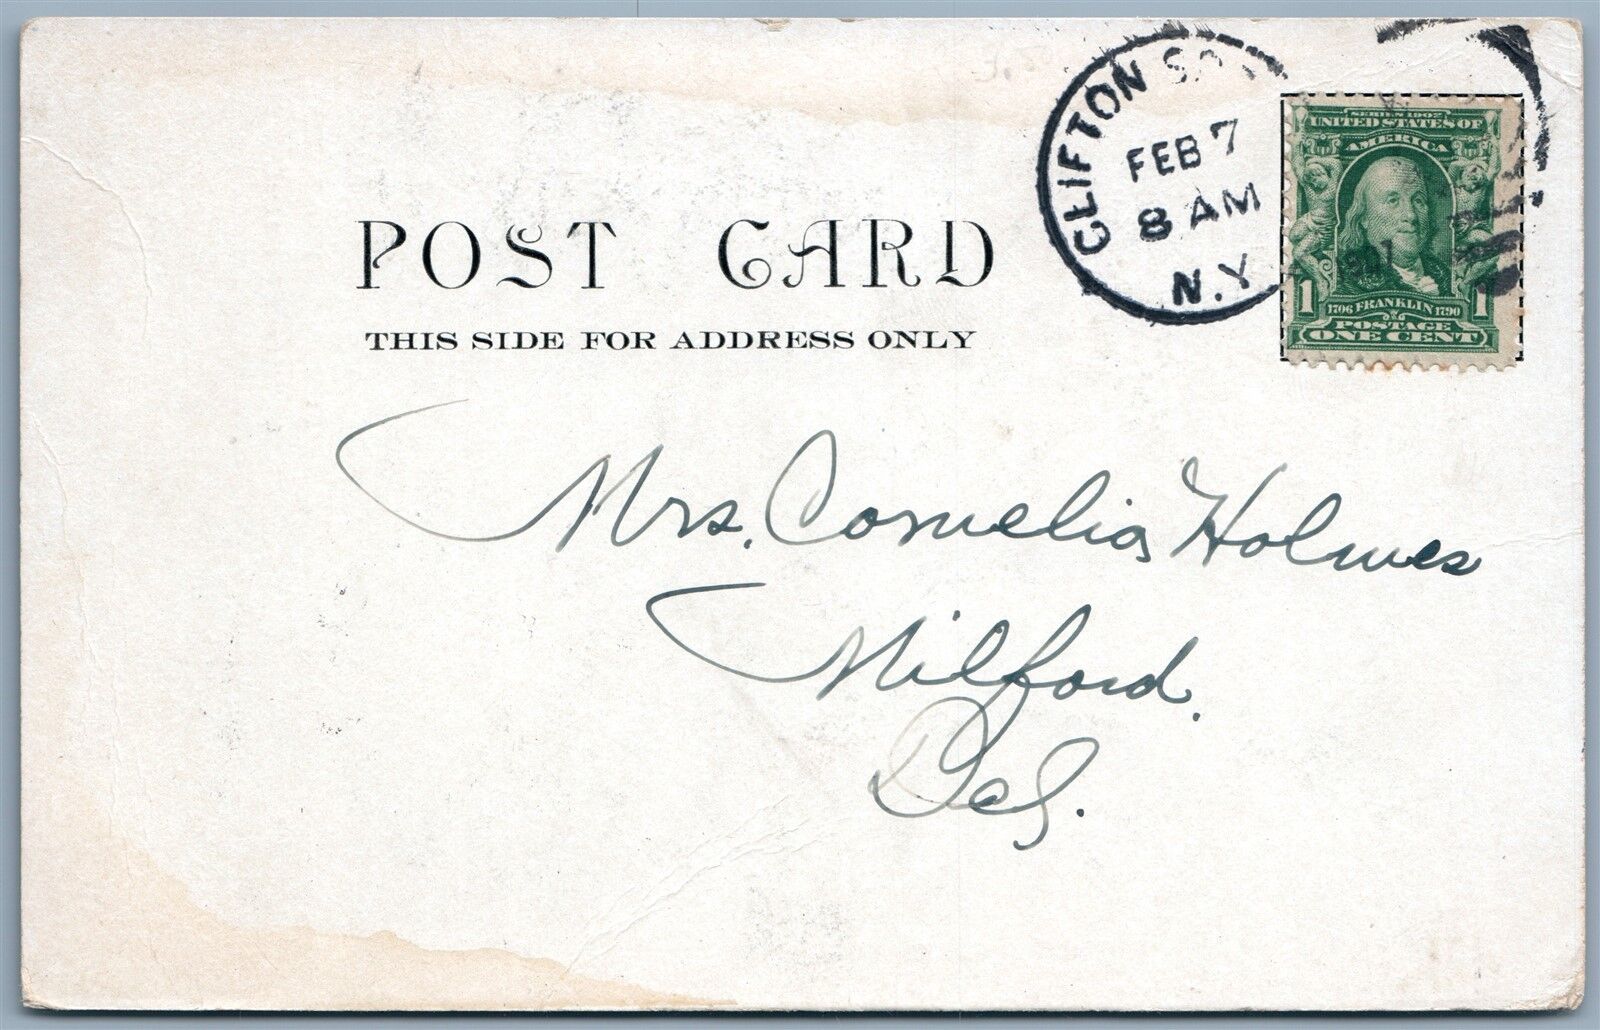 POST CARD
THIS SIDE FOR ADDRESS ONLY
CLIFTON
FEB 7
8 AM
N.Y.
SERIES 1902
UNITED STATES OF
AMERICA
1 1
1706 FRANKLIN 1790
POSTAGE
ONE CENT
Mrs. Cornelia Holmes
Milford.
Del.